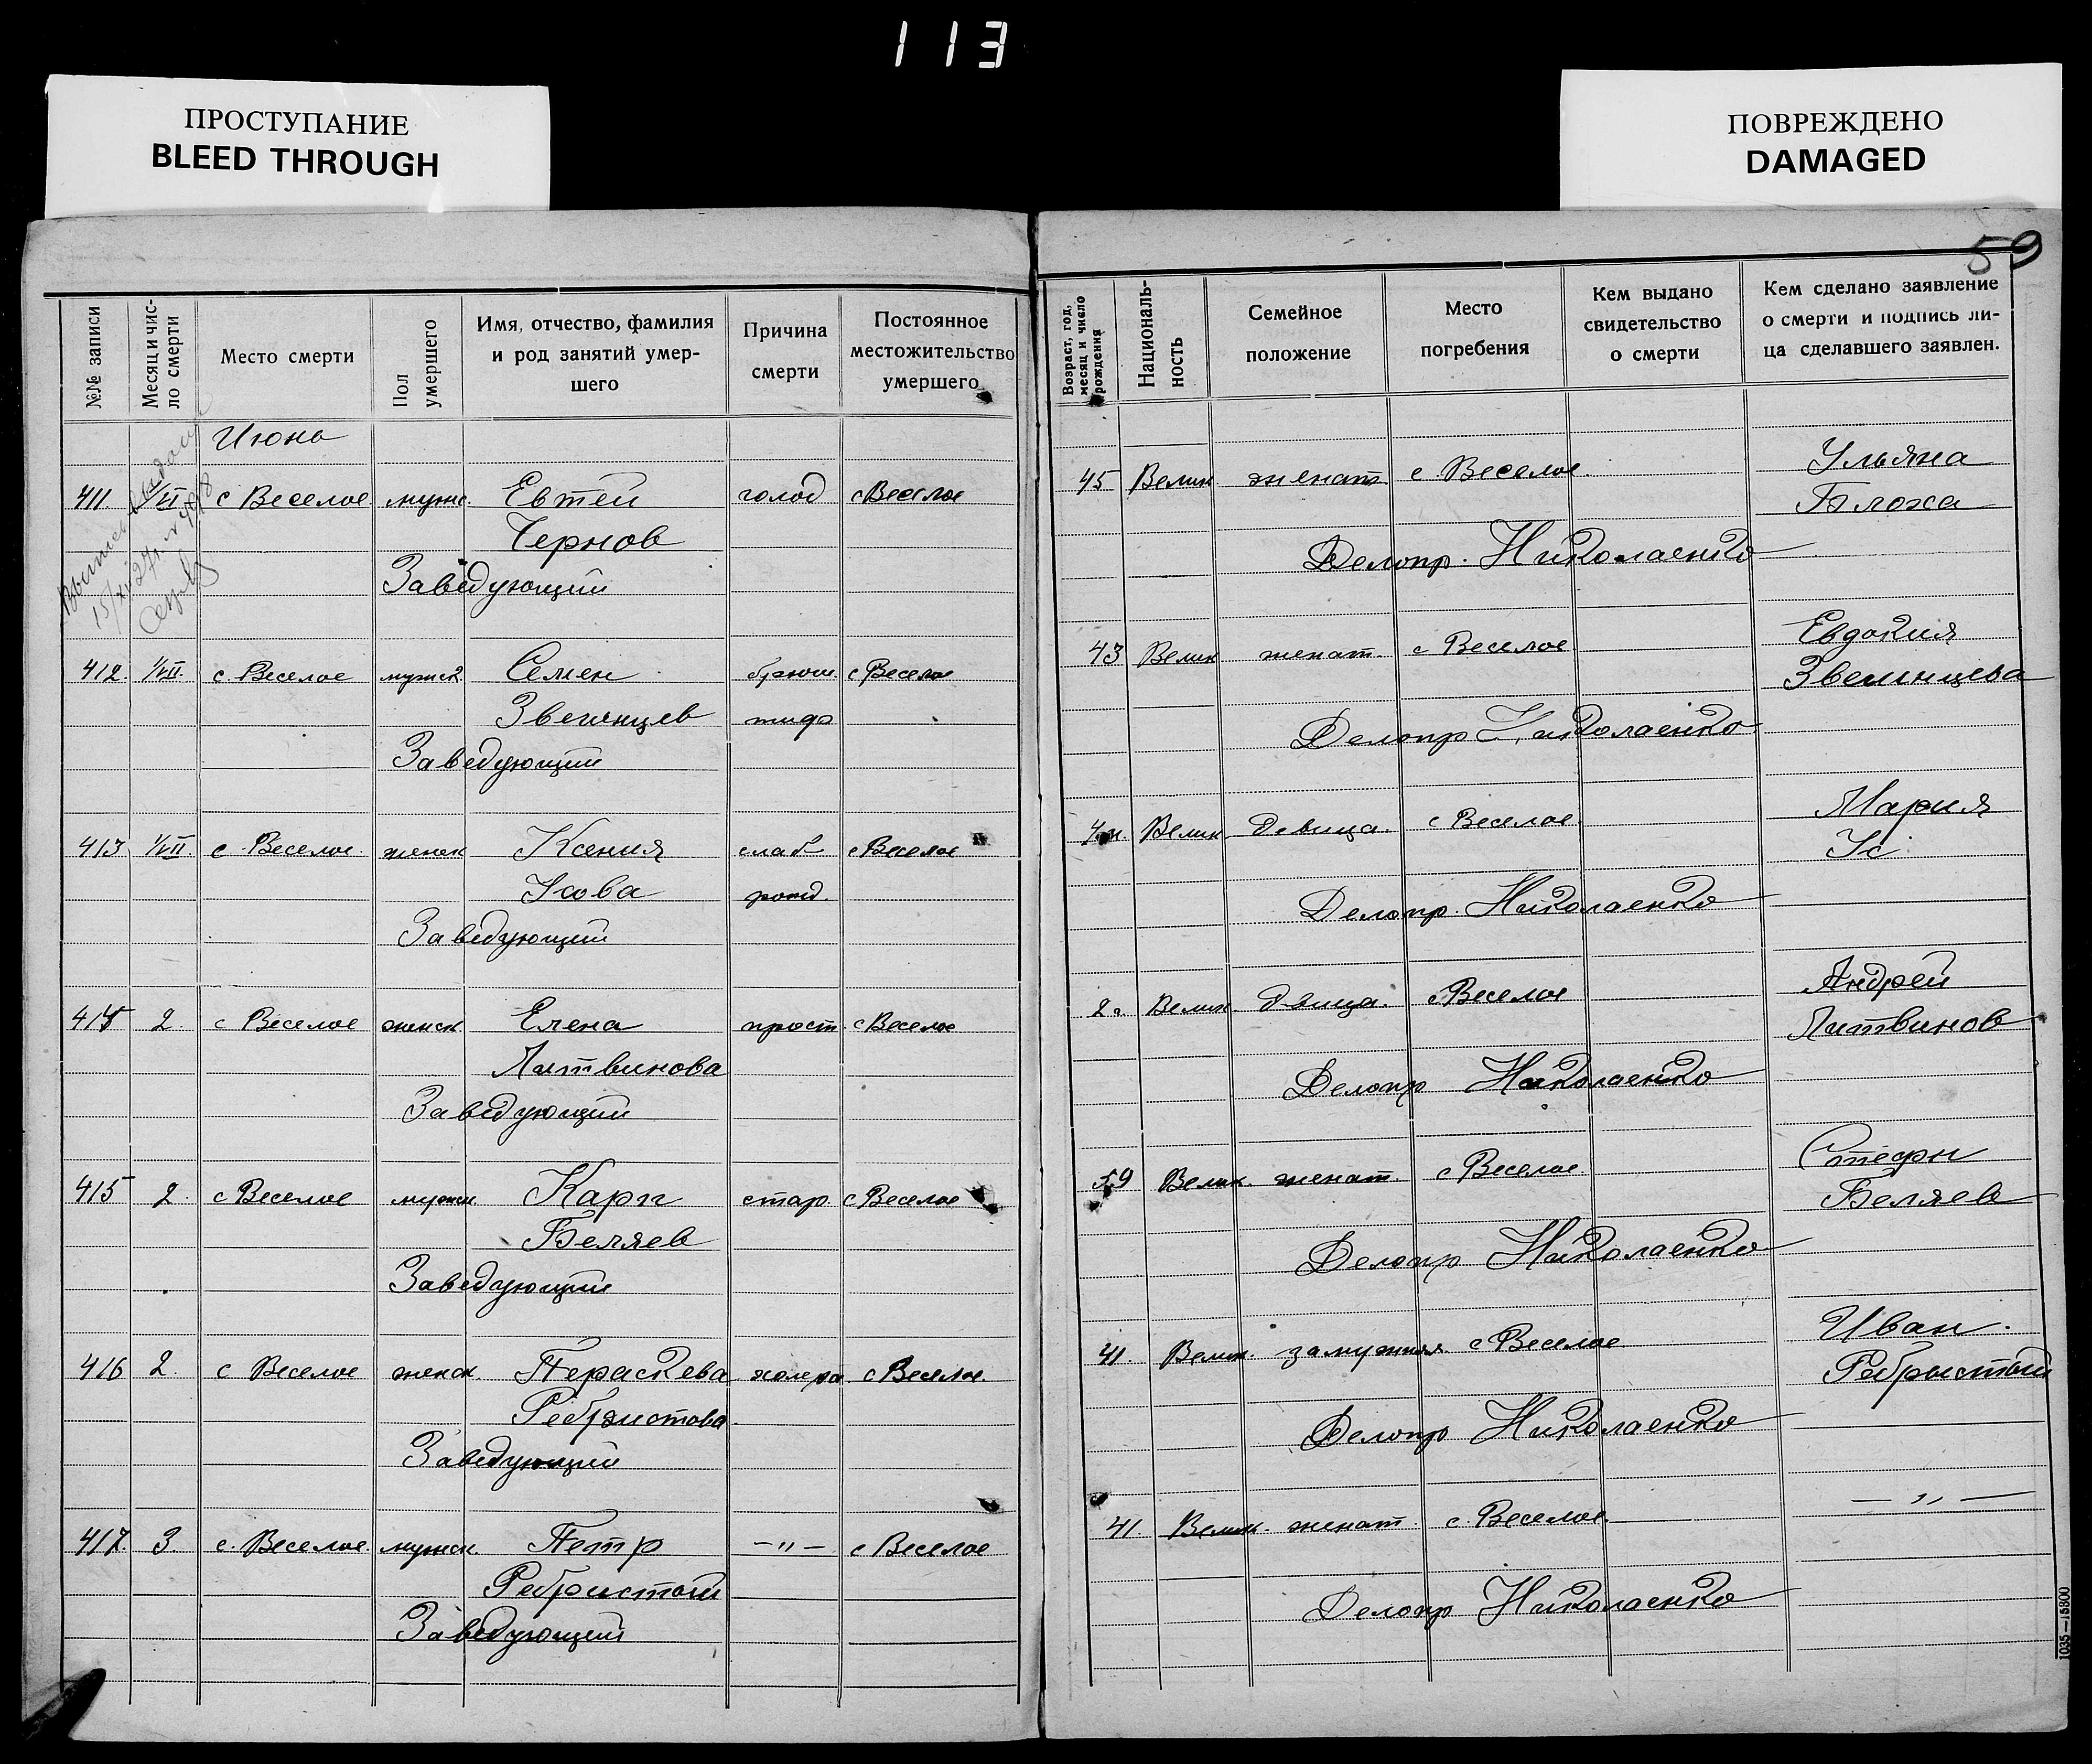 113
ПРОСТУПАНИЕ
BLEED THROUGH
ПОВРЕЖДЕНО
DAMAGED
59
№№ записи
Месяц и чис-
ло смерти
Место смерти
Пол
умершего
Имя, отчество, фамилия
и род занятий умер-
шего
Причина
смерти
Постоянное
местожительство
умершего
Возраст, год,
месяц и число
рождения
Националь-
ность
Семейное
положение
Место
погребения
Кем выдано
свидетельство
о смерти
Кем сделано заявление
о смерти и подпись ли-
ца сделавшего заявлен.
Июнь
411. с Веселое мужс. Евтей голод с Веселое 45 Велик женат с Веселое Ульяна
Чернов Блоха
Заведующий Делопр. Николаенко
412. 1/VII. с. Веселое мужск Семен брюш. с Веселое 43 Велик женат. с Веселое Евдокия
Звегинцев тиф Звегинцева
Заведующий Делопр Николаенко
413 1/VII. с. Веселое. женск Ксения слаб с Веселое Велик. Девица. с Веселое Мария
Усова рожд. Ус
Заведующий Делопр. Николаенко
414 2. с Веселое женск Елена прост с Веселое 2 Велик. девица. с Веселое Андрей
Литвинова Литвинов
Заведующий Делопр Николаенко
415 2. с Веселое мужск. Карп стар. с Веселое 59 Велик. женат. с Веселое Стефн
Беляев Беляев
Заведующий Делопр Николаенко
416 2. с Веселое женск. Пераскева холера с Веселое 41. Велик. замужняя с Веселое Иван.
Ребристова Ребристый
Заведующий Делопр Николаенко
417. 3. с. Веселое. мужск. Петр —„— с Веселое 41. Велик. женат. с. Веселое. —„—
Ребристый
Заведующий Делопр Николаенко
1035—15300